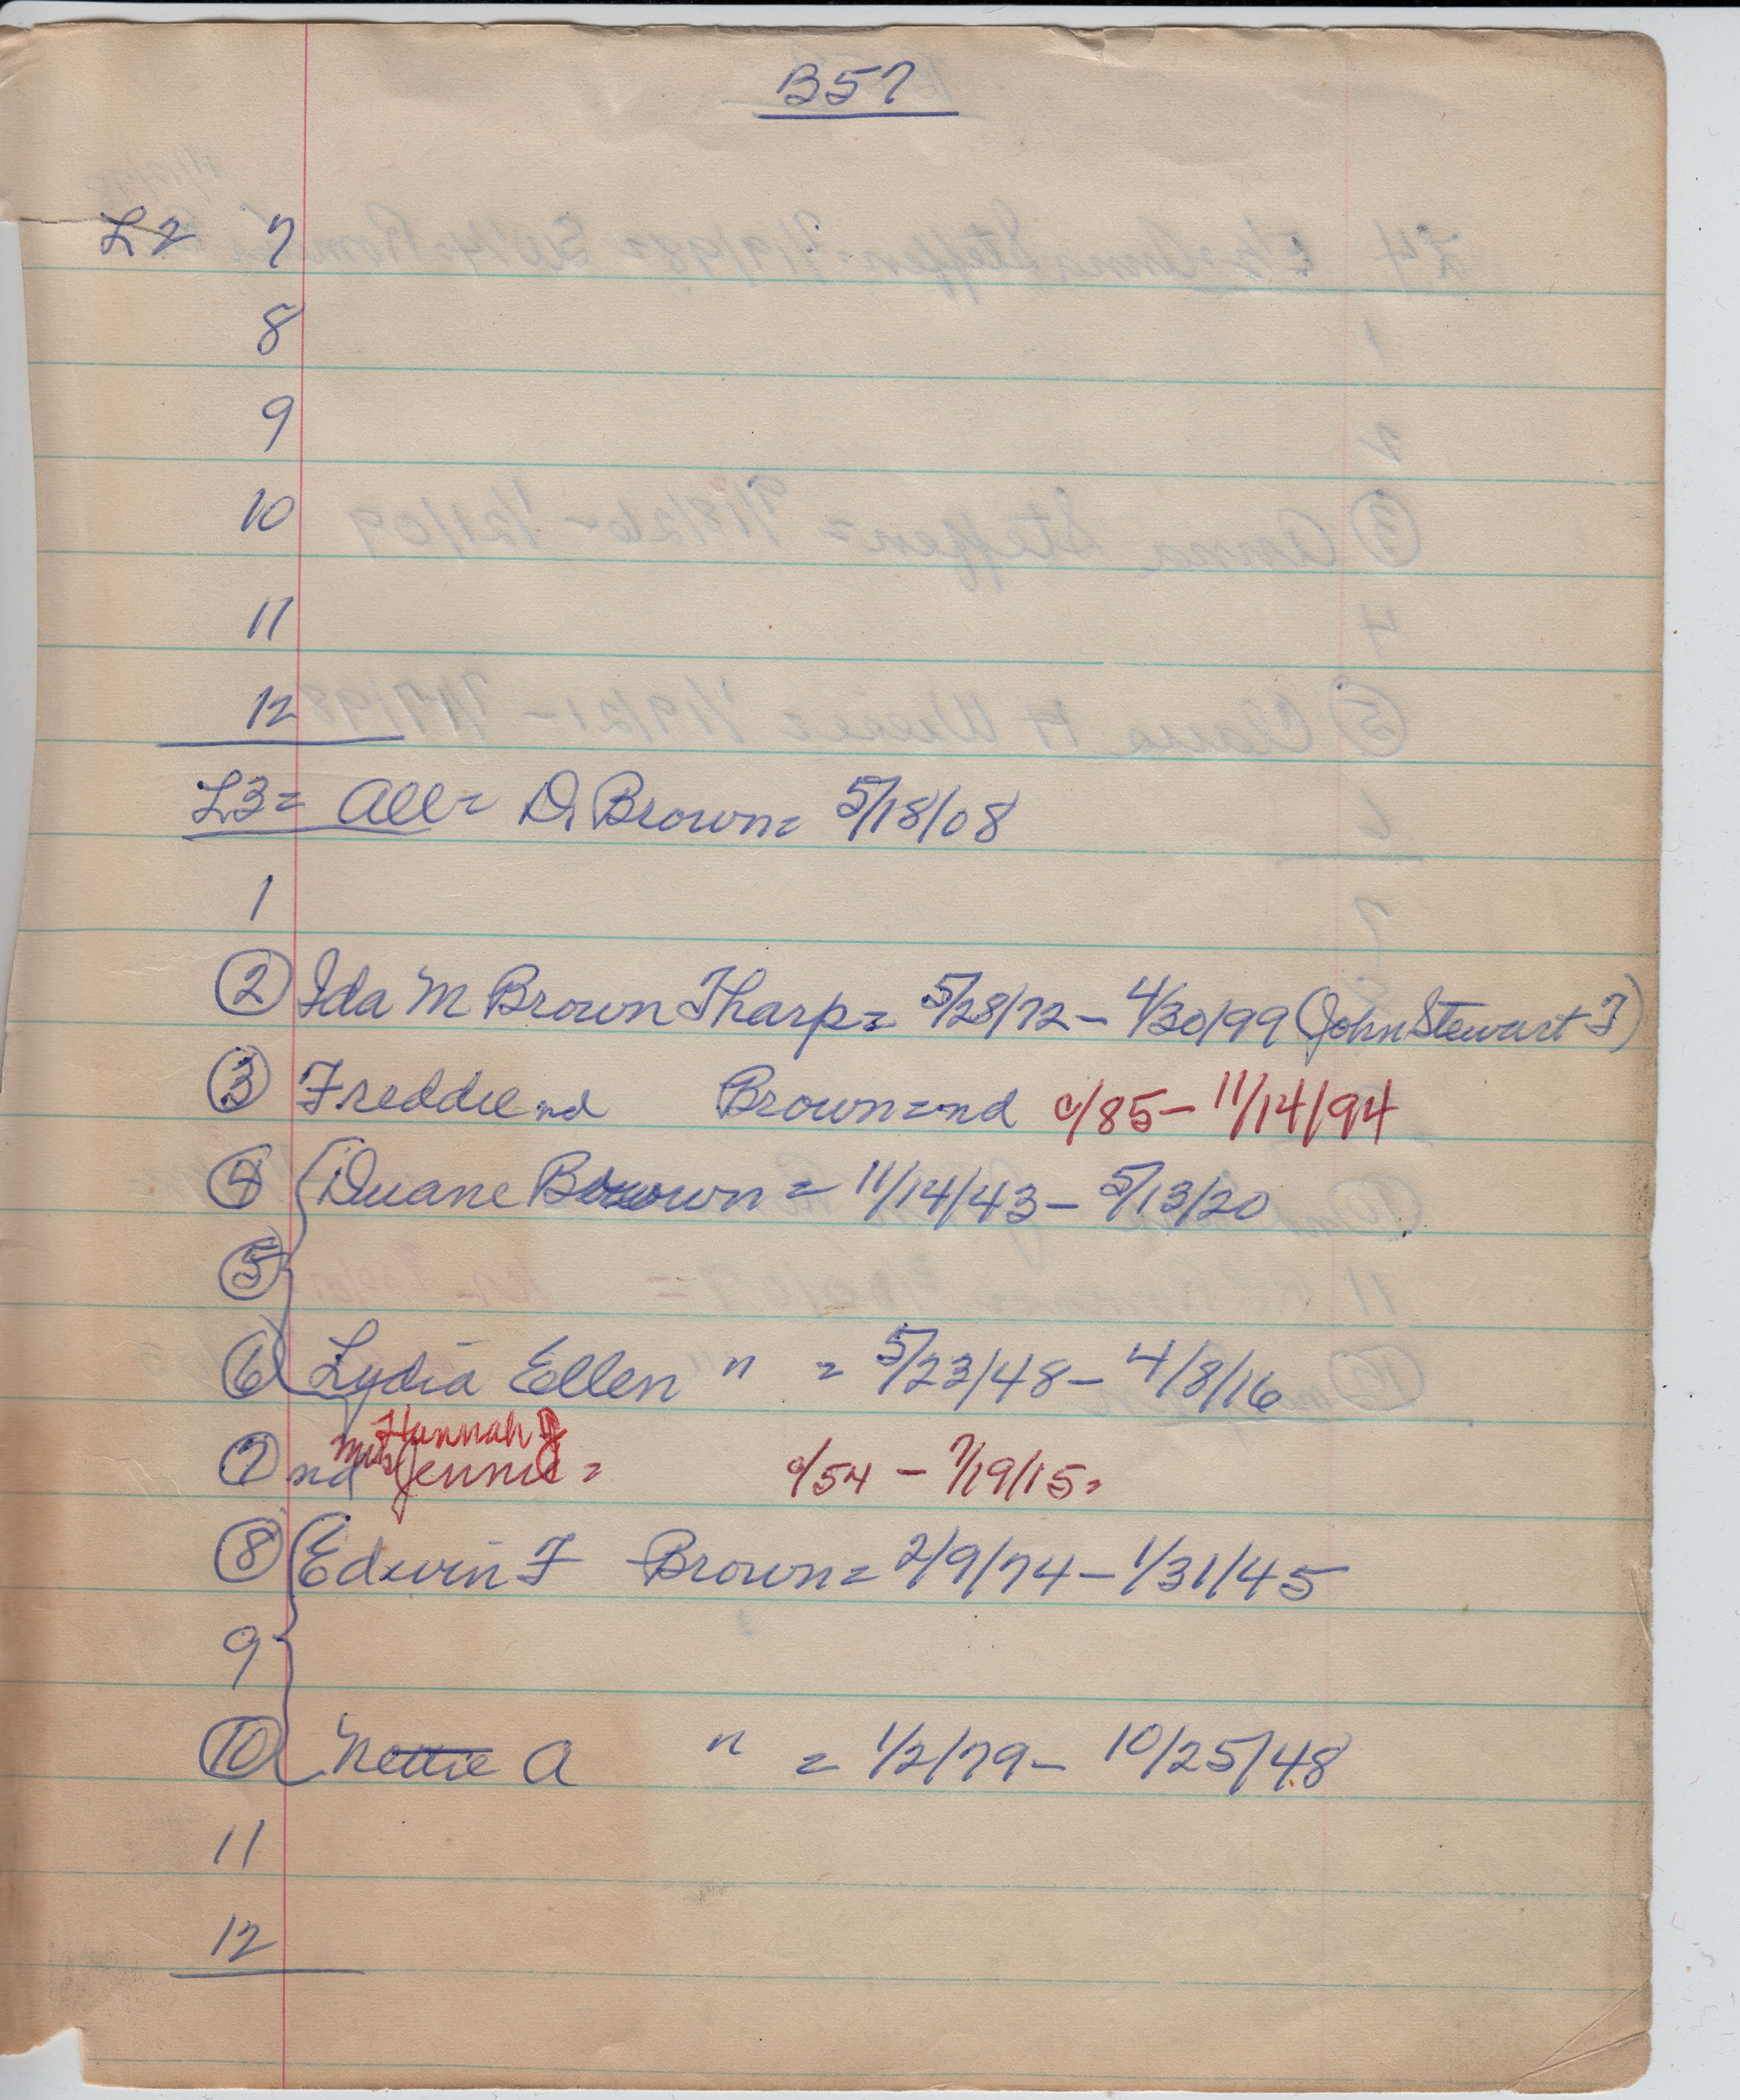 B57
L2 7
8
9
10
11
12
L3= All= D. Brown= 5/18/08
1
2 Ida M Brown Tharp= 5/28/72- 4/30/99 (John Stewart T)
3 Freddie nd Brown=nd c/85- 11/14/94
4 Duane Brown = 11/14/43- 5/13/20
5
6 Lydia Ellen " = 5/23/48- 4/8/16
Hannah J
7 nd Mrs Jennie = c/54 - 7/19/15=
8 Edwin F Brown= 2/9/74- 1/31/45
9
10 Nettie A " = 1/2/79- 10/25/48
11
12